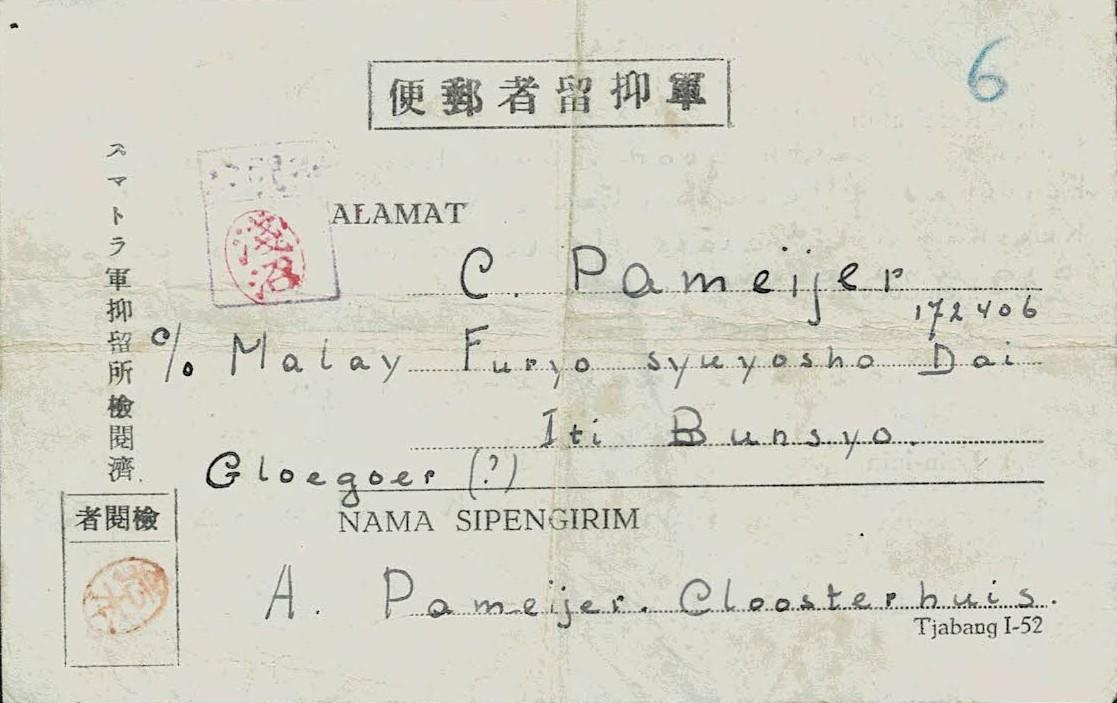 6
便郵者留抑軍
スマトラ軍抑留所檢閲濟
淺沼
ALAMAT
C. Pameijer
172406
c/o Malay Furyo syuyosho Dai
Iti Bunsyo.
Gloegoer (?)
者閲檢
NAMA SIPENGIRIM
A. Pameijer. Cloosterhuis.
Tjabang I-52